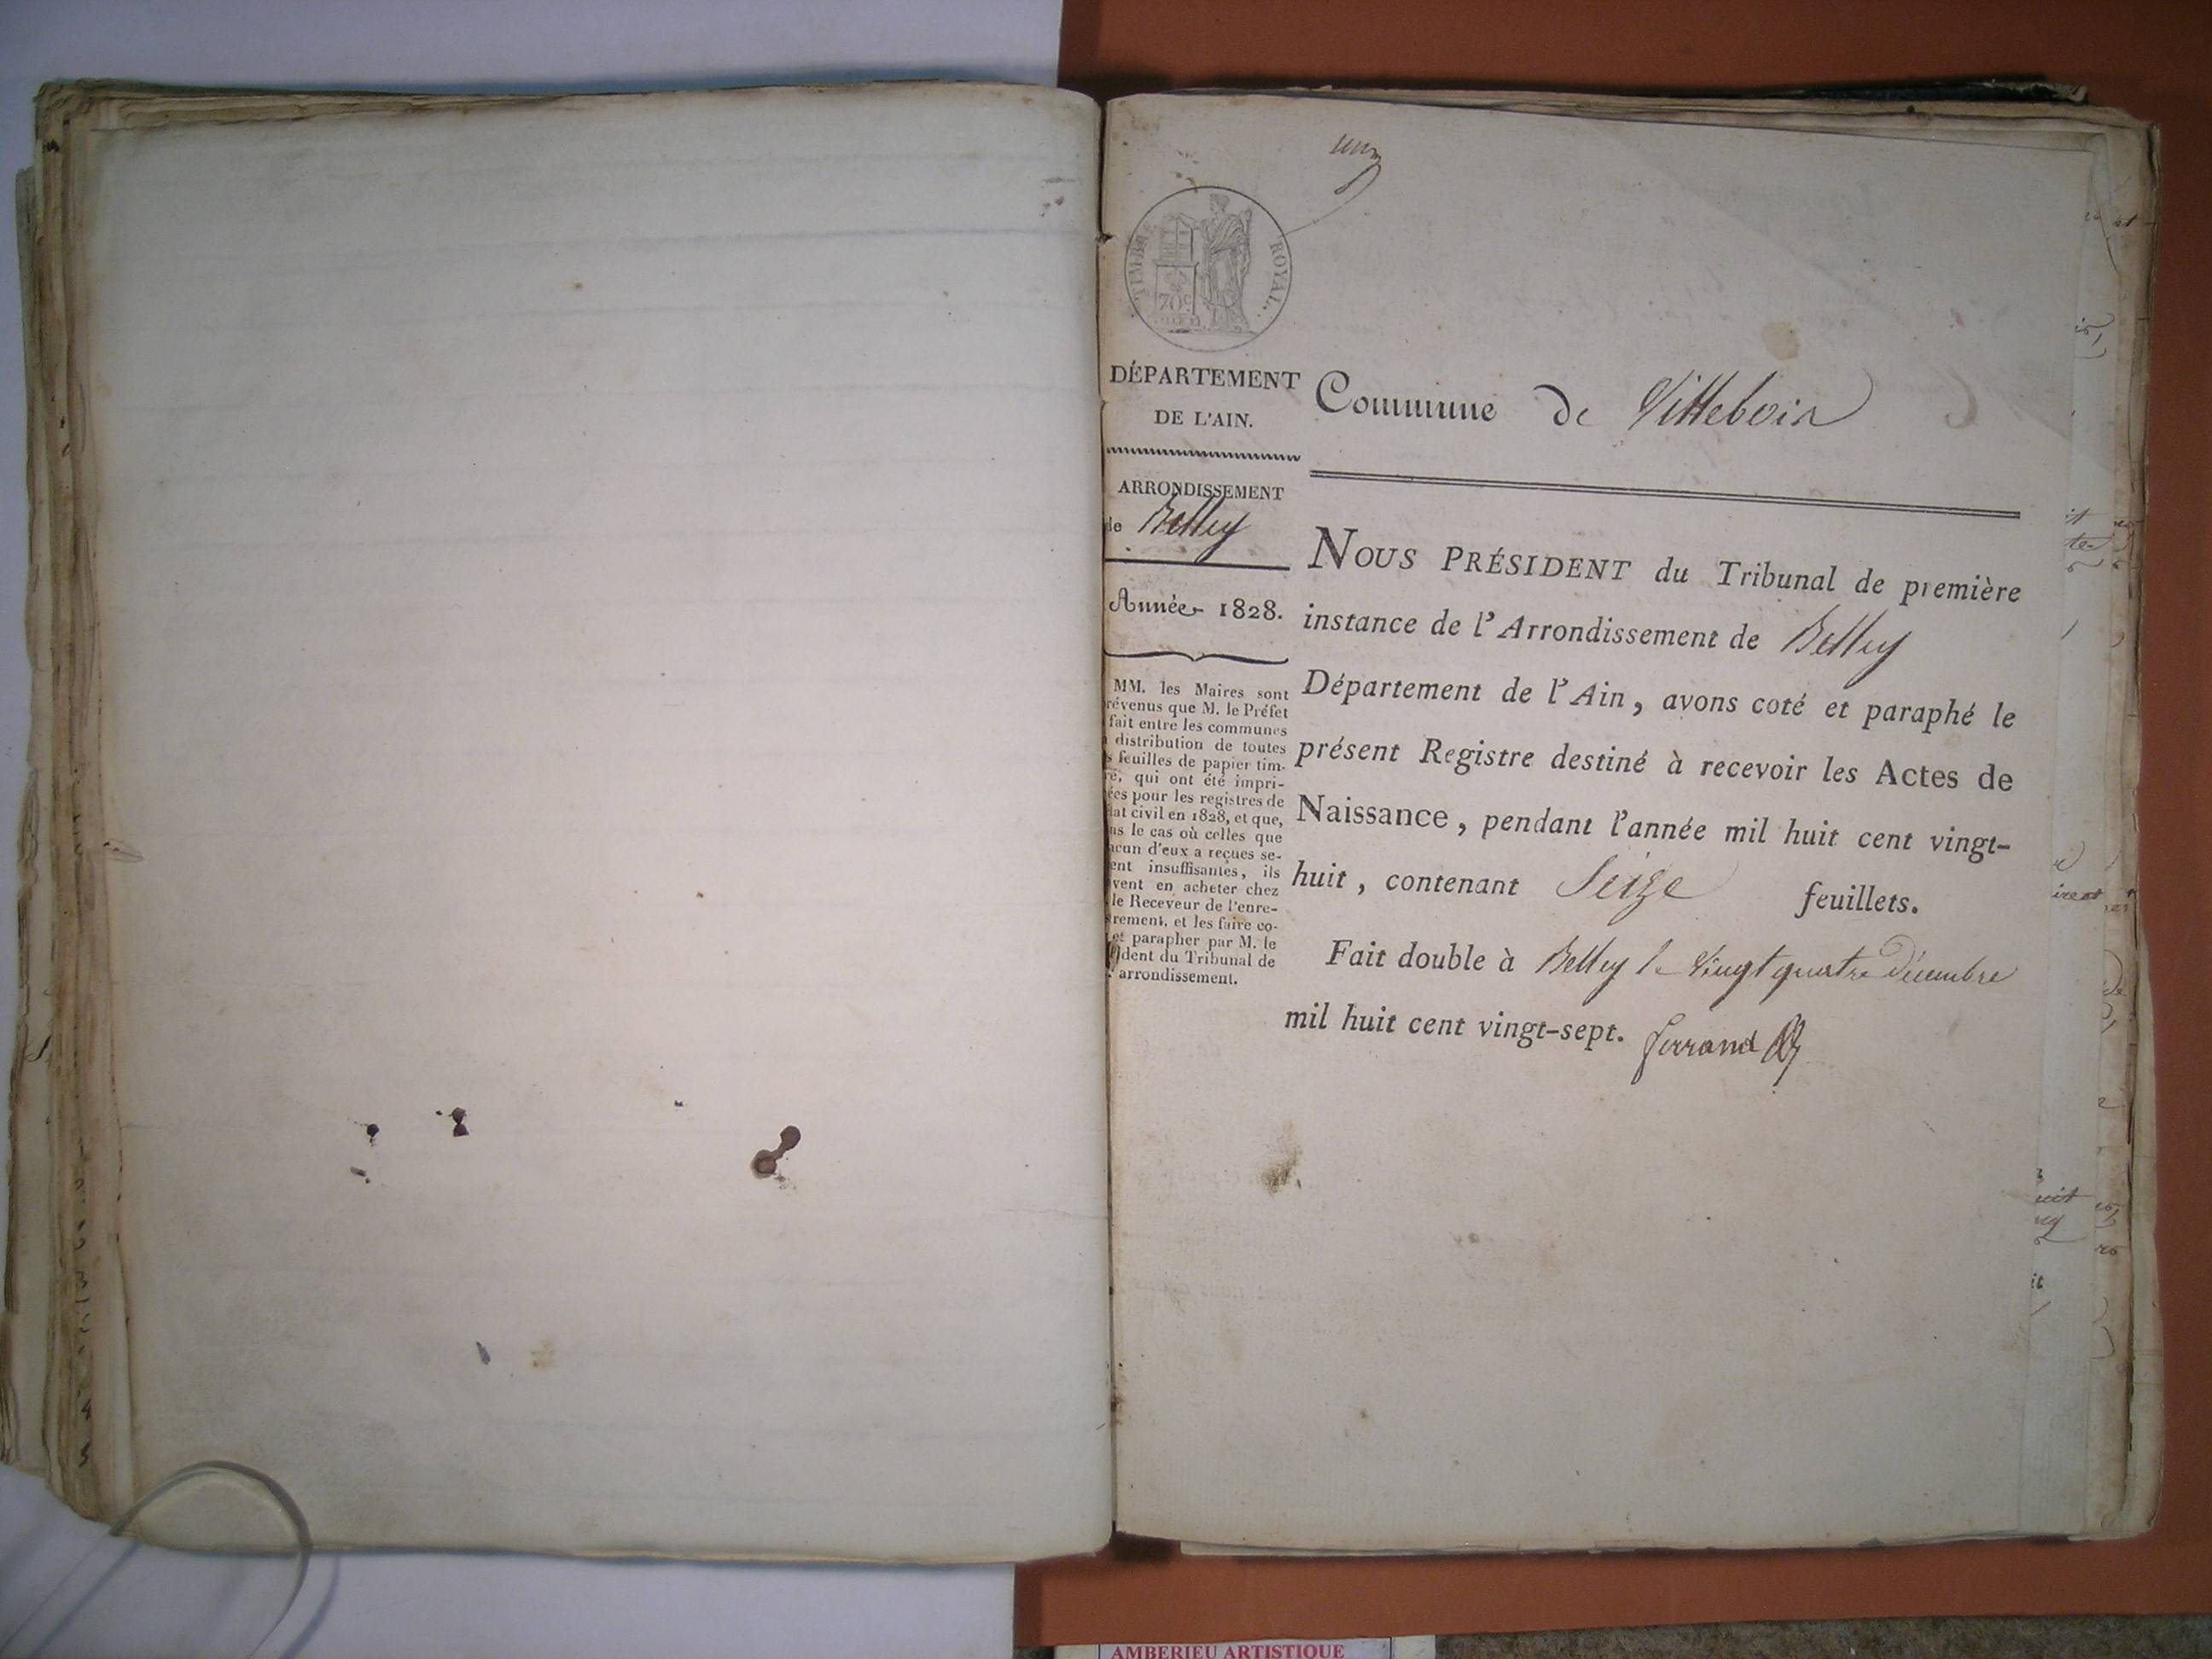 un
TIMBRE ROYAL.
70c
DÉPARTEMENT
DE L'AIN.
ARRONDISSEMENT
de Belley
Année 1828.
MM. les Maires sont
révenus que M. le Préfet
fait entre les communes
distribution de toutes
s feuilles de papier tim-
ré, qui ont été impri-
ées pour les registres de
tat civil en 1828, et que,
ns le cas où celles que
acun d'eux a reçues se-
ent insuffisantes, ils
vent en acheter chez
le Receveur de l'enre-
trement, et les faire co-
et parapher par M. le
ident du Tribunal de
arrondissement.
Commune de Villebois
NOUS PRÉSIDENT du Tribunal de première
instance de l'Arrondissement de Belley
Département de l'Ain, avons coté et paraphé le
présent Registre destiné à recevoir les Actes de
Naissance, pendant l'année mil huit cent vingt-
huit, contenant Seize feuillets.
Fait double à Belley le Vingt quatre Décembre
mil huit cent vingt-sept. ferrand
AMBERIEU ARTISTIQUE